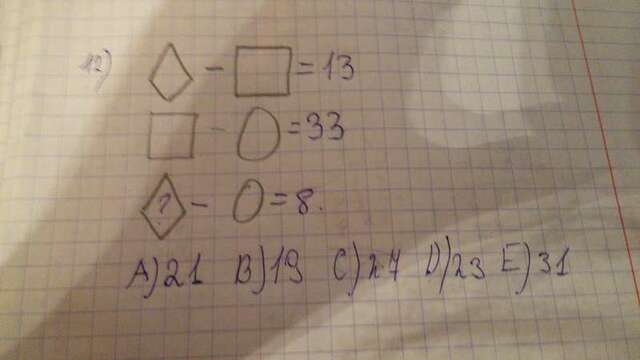 12) ◇ - □ = 13
□ - ○ = 33
◇? - ○ = 8.
A) 21 B) 19 C) 27 D) 23 E) 31